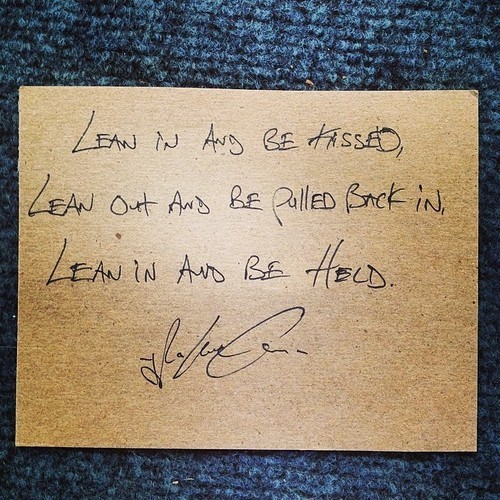 LEAN IN AND BE KISSED,
LEAN OUT AND BE PULLED BACK IN,
LEAN IN AND BE HELD.